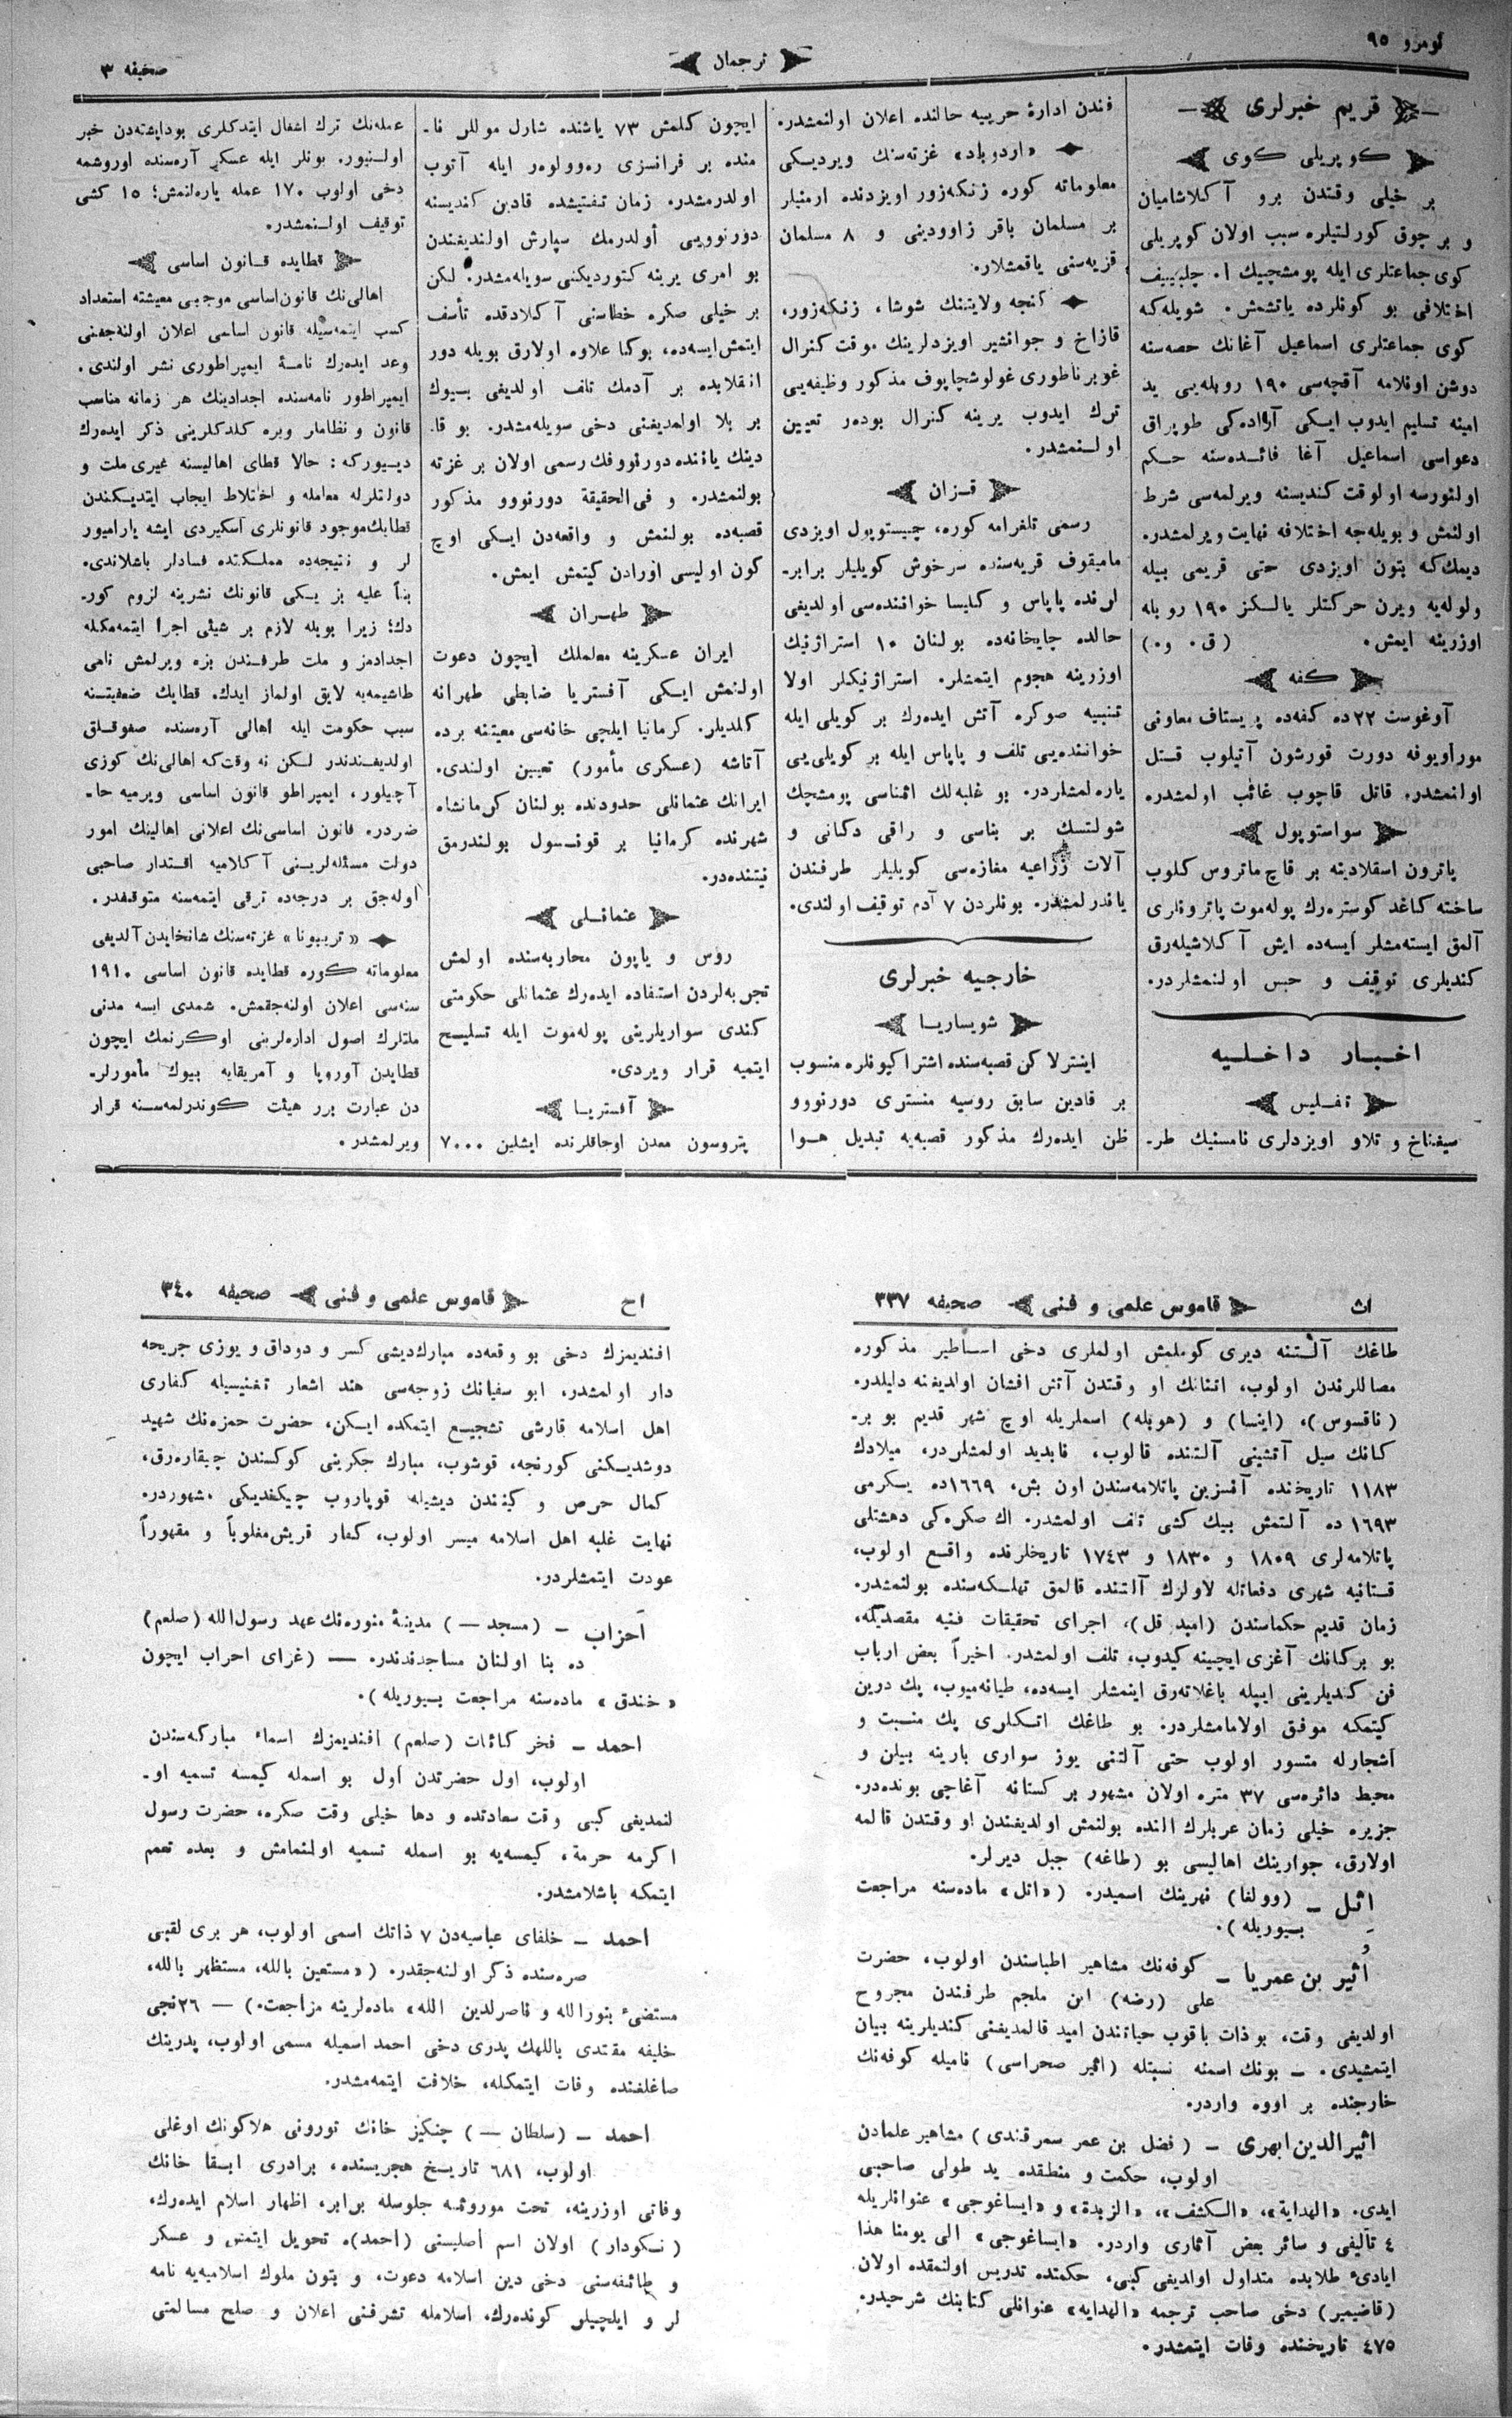 نومرو ٩٥
ترجمان
صحیفه ٣
قریم خبرلری
كوپریلی كوی
بر خیلی وقتدن برو آكلاشامیان
و بر چوق كورلتیلره سبب اولان كوپریلی
كوی جماعتلری ایله پومشچیك ا. چلبییف
اختلافی بو كونلرده یاتشمش. شویله كه
كوی جماعتلری اسماعیل آغانك حصه سنه
دوشن اوقلامه آقچه سی ١٩٠ روبله یی ید
امینه تسلیم ایدوب ایكی آراده كی طوپراق
دعواسی اسماعیل آغا فائده سنه حكم
اولنورسه اولوقت كندیسنه ویرلمه سی شرط
اولنمش و بویله جه اختلافه نهایت ویرلمشدر.
دیمك كه بتون اویزدی حتی قریمی بیله
ولوله یه ویرن حركتلر یالكز ١٩٠ روبله
اوزرینه ایمش. (ق. و.)
كفه
آوغوست ٢٢ ده كفه ده پریستاف معاونی
موراویوفه دورت قورشون آتیلوب قتل
اولنمشدر. قاتل قاچوب غائب اولمشدره
سواستوپول
پاترون اسقلادینه بر قاچ ماتروس كلوب
ساخته كاغد كوستره رك پوله موت پاترونلری
آلمق ایسته مشلر ایسه ده ایش آكلاشیله رق
كندیلری توقیف و حبس اولنمشلردر.
اخبار داخلیه
تفلیس
سیغناخ و تلاو اویزدلری نامستنیك طر-
فندن ادارۀ حربیه حالنده اعلان اولنمشدر.
«اردوباد» غزته سنك ویردیكی
معلوماته كوره زنكه زور اویزدنده ارمنیلر
بر مسلمان باقر زاوودینی و ٨ مسلمان
قریه سنی یاقمشلار.
كنجه ولایتنك شوشا، زنكه زور،
قازاخ و جوانشیر اویزدلرینك موقت كنرال
غوبرناطوری غولوشچاپوف مذكور وظیفه یی
ترك ایدوب یرینه كنرال بودەر تعیین
اولنمشدر.
قزان
رسمی تلغرامه كوره، چیستوپول اویزدی
مامیقوف قریه سنده سرخوش كویلیلر برابر-
لرنده پاپاس و كلیسا خواننده سی اولدیغی
حالده چایخانه ده بولنان ١٠ استراژنیك
اوزرینه هجوم ایتمشلر. استراژنیكلر اولا
تنبیه صوكره آتش ایده رك بر كویلی ایله
خواننده یی تلف و پاپاس ایله بر كویلی یی
یاره لمشلردر. بو غلبه لك اثناسی پومشچك
شولتسك بر بناسی و راقی دكانی و
آلات زراعیه مغازه سی كویلیلر طرفندن
یاندرلمشدر. بونلردن ٧ آدم توقیف اولندی.
خارجیه خبرلری
شویساریا
اینترلاكن قصبه سنده اشتراكیونلره منسوب
بر قادین سابق روسیه منستری دورنووو
ظن ایده رك مذكور قصبه یه تبدیل هوا
ایچون كلمش ٧٣ یاشنده شارل موللر نا-
منده بر فرانسزی ره وولوەر ایله آتوب
اولدرمشدر. زمان تفتیشده قادین كندیسنه
دورنوویی أولدرمك سپارش اولندیغندن
بو امری یرینه كتوردیكنی سویله مشدر. لكن
بر خیلی صكره خطاسنی آكلادقده تأسف
ایتمش ایسه ده، بوكا علاوه اولارق بویله دور
انقلابده بر آدمك تلف اولدیغی بیوك
بر بلا اولمدیغنی دخی سویله مشدر. بو قا-
دینك یاننده دورنووفك رسمی اولان بر غزته
بولنمشدر. و فی الحقیقة دورنووو مذكور
قصبه ده بولنمش و واقعه دن ایكی اوچ
كون اولیسی اورادن كیتمش ایمش.
طهران
ایران عسكرینه معلملك ایچون دعوت
اولنمش ایكی آفستریا ضابطی طهرانه
كلمدیلر. كرمانیا ایلچی خانه سی معیتنه برده
آتاشه (عسكری مأمور) تعیین اولندی.
ایرانك عثمانلی حدودنده بولنان كرمانشاه
شهرنده كرمانیا بر قونسول بولندرمق
نیتنده در.
عثمانلی
روس و یاپون محاربه سنده اولمش
تجربه لردن استفاده ایده رك عثمانلی حكومتی
كندی سواریلرینی پوله موت ایله تسلیح
ایتمیه قرار ویردی.
آفستریا
پتروسون معدن اوجاقلرنده ایشلین ٧٠٠٠
عمله نك ترك اشغال ایتدكلری بوداپشته دن خبر
اولنیور. بونلر ایله عسكر آره سنده اوروشمه
دخی اولوب ١٧٠ عمله یاره لنمش؛ ١٥ كشی
توقیف اولنمشدر.
قطایده قانون اساسی
اهالی نك قانون اساسی موجبی معیشته استعداد
كسب ایتمه سیله قانون اساسی اعلان اولنه جغنی
وعد ایده رك نامۀ ایمپراطوری نشر اولندی.
ایمپراطور نامه سنده اجدادینك هر زمانه مناسب
قانون و نظاملر ویره كلدكلرینی ذكر ایده رك
دیوركه: حالا قطای اهالیسنه غیری ملت و
دولتلرله معامله و اختلاط ایجاب ایتدیكندن
قطایك موجود قانونلری اسكیردی ایشه یارامیور
لر و نتیجه ده مملكتده فسادلر باشلاندی.
بناً علیه بز یكی قانونك نشرینه لزوم كور-
دك؛ زیرا بویله لازم بر شیئی اجرا ایتمه مكله
اجدادمز و ملت طرفندن بزه ویرلمش نامی
طاشیمه یه لایق اولماز ایدك. قطایك ضعفیتنه
سبب حكومت ایله اهالی آره سنده صغوقلق
اولدیغندندر لكن نه وقت كه اهالی نك كوزی
آچیلور، ایمپراطو قانون اساسی ویرمیه حا-
ضردر. قانون اساسی نك اعلانی اهالینك امور
دولت مسئله لرینی آكلامیه اقتدار صاحبی
اوله جق بر درجه ده ترقی ایتمه سنه متوقفدر.
«تریبونا» غزته سنك شانخایدن آلدیغی
معلوماته كوره قطایده قانون اساسی ١٩١٠
سنه سی اعلان اولنه جقمش. شمدی ایسه مدنی
ملتلرك اصول اداره لرینی اوكرنمك ایچون
قطایدن آوروپا و آمریقایه بیوك مأمورلر-
دن عبارت برر هیئت كوندرلمه سنه قرار
ویرلمشدر.
اث
قاموس علمی و فنی
صحیفه ٣٣٧
طاغك آلتنه دیری كوملمش اولملری دخی اساطیر مذكوره
مصاللرندن اولوب، اتنانك او وقتدن آتش افشان اولدیغنه دلیلدر.
(ناقسوس)، (اینسا) و (هوبله) اسملریله اوچ شهر قدیم بو بر-
كانك سیل آتشینی آلتنده قالوب، نابدید اولمشلردر، میلادك
١١٨٣ تاریخنده آنسزین پاتلامه سندن اون بش، ١٦٦٩ ده یكرمی
١٦٩٣ ده آلتمش بیك كشی تلف اولمشدر. اك صكره كی دهشتلی
پاتلامه لری ١٨٠٩ و ١٨٣٠ و ١٧٤٣ تاریخلرنده واقع اولوب،
قستانیه شهری دفعاتله لاولرك آلتنده قالمق تهلكه سنده بولنمشدر.
زمان قدیم حكماسندن (امپد قل)، اجرای تحقیقات فنیه مقصدیكه،
بو بركانك آغزی ایچینه كیدوب، تلف اولمشدر. اخیراً بعض ارباب
فن كندیلرینی ایپله باغلاته رق اینمشلر ایسه ده، طیانه میوب، پك درین
كیتمكه موفق اولامامشلردر. بو طاغك اتكلری پك منبت و
اشجارله مستور اولوب حتی آلتنی یوز سواری بارینه بیلن و
محیط دائره سی ٣٧ متره اولان مشهور بر كستانه آغاجی بونده در.
جزیره خیلی زمان عربلرك النده بولنمش اولدیغندن او وقتدن قالمه
اولارق، جوارینك اهالیسی بو (طاغه) جبل دیرلر.
اثل - (وولغا) نهرینك اسمیدر. («اتل» ماده سنه مراجعت
بیوریله).
أثیر بن عمریا - كوفه نك مشاهیر اطباسندن اولوب، حضرت
علی (رضه) ابن ملجم طرفندن مجروح
اولدیغی وقت، بو ذات باقوب حیاتندن امید قالمدیغنی كندیلرینه بیان
ایتمشیدی. - بونك اسمنه نسبتله (اثیر صحراسی) نامیله كوفه نك
خارجنده بر اووه واردر.
اثیرالدین ابهری - (فضل بن عمر سمرقندی) مشاهیر علمادن
اولوب، حكمت و منطقده ید طولی صاحبی
ایدی. «الهدایة»، «الكشف»، «الزبدة» و «ایساغوجی» عنوانلریله
٤ تألیفی و سائر بعض آثاری واردر. «ایساغوجی» الی یومنا هذا
ایادیء طلابده متداول اولدیغی كبی، حكمتده تدریس اولنمقده اولان
(قاضیمیر) دخی صاحب ترجمه «الهدایه» عنوانلی كتابنك شرحیدر.
٤٧٥ تاریخنده وفات ایتمشدر.
اح
قاموس علمی و فنی
صحیفه ٣٤٠
افندیمزك دخی بو وقعه ده مبارك دیشی كسر و دوداق و یوزی جریحه
دار اولمشدر، ابو سفیانك زوجه سی هند اشعار تغنیسیله كفاری
اهل اسلامه قارشی تشجیع ایتمكده ایكن، حضرت حمزه نك شهید
دوشدیكنی كورنجه، قوشوب، مبارك جكرینی كوكسندن چیقاره رق،
كمال حرص و كیندن دیشیله قوپاروب چیكندیكی مشهوردر.
نهایت غلبه اهل اسلامه میسر اولوب، كفار قریش مغلوباً و مقهوراً
عودت ایتمشلردر.
احزاب - (مسجد —) مدینۀ منوره نك عهد رسول الله (صلعم)
ده بنا اولنان مساجدندندر. — (غزای احزاب ایچون
«خندق» ماده سنه مراجعت بیوریله).
احمد - فخر كائنات (صلعم) افندیمزك اسماء مباركه سندن
اولوب، اول حضرتدن أول بو اسمله كیمسه تسمیه او-
لنمدیغی كبی وقت سعادتده و دها خیلی وقت صكره، حضرت رسول
اكرمه حرمة، كیمسه یه بو اسمله تسمیه اولنمامش و بعده تعمم
ایتمكه باشلامشدر.
احمد - خلفای عباسیه دن ٧ ذاتك اسمی اولوب، هر بری لقبی
صره سنده ذكر اولنه جقدر. («مستعین بالله، مستظهر بالله،
مستضیء بنورالله و ناصرلدین الله» ماده لرینه مراجعت.) — ٢٦ نجی
خلیفه مقتدی باللهك پدری دخی احمد اسمیله مسمی اولوب، پدرینك
صاغلغنده وفات ایتمكله، خلافت ایتمه مشدر.
احمد - (سلطان —) چنكیز خانك تورونی هلاكونك اوغلی
اولوب، ٦٨١ تاریخ هجریسنده، برادری ابقا خانك
وفاتی اوزرینه، تخت موروثنه جلوسله برابر، اظهار اسلام ایده رك،
(نكودار) اولان اسم أصلیسنی (أحمد)ه تحویل ایتمش و عسكر
و طائفه سنی دخی دین اسلامه دعوت، و بتون ملوك اسلامیه یه نامه
لر و ایلچیلر كونده رك، اسلامله تشرفنی اعلان و صلح مسالمتی